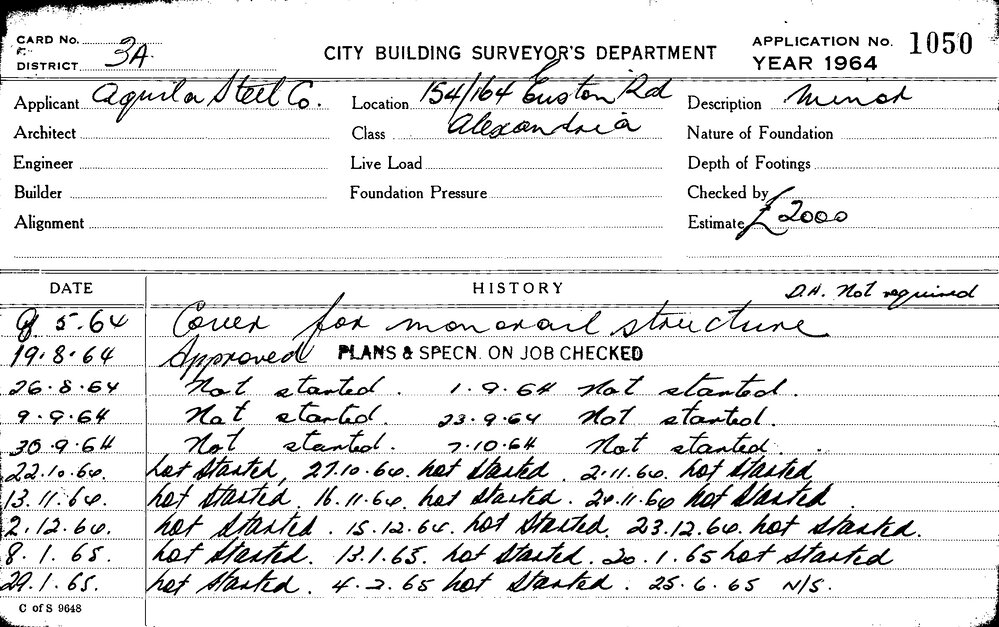 CARD No.
F.
DISTRICT 3A
CITY BUILDING SURVEYOR'S DEPARTMENT
APPLICATION No. 1050
YEAR 1964
Applicant Aquila Steel Co. Location 154/164 Euston Rd Description Minor
Architect Class Alexandria Nature of Foundation
Engineer Live Load Depth of Footings
Builder Foundation Pressure Checked by
Alignment Estimate £2000
DATE HISTORY D.A. Not required
5.64 Cover for monorail structure
19.8.64 Approved PLANS & SPECN. ON JOB CHECKED
26.8.64 Not started. 1.9.64 Not started.
9.9.64 Not started. 23.9.64 Not started.
30.9.64 Not started. 7.10.64 Not started.
22.10.64. Not Started, 27.10.64. Not Started. 2.11.64. Not Started
13.11.64. Not Started. 16.11.64. Not Started. 24.11.64 Not Started
2.12.64. Not Started. 15.12.64. Not Started. 23.12.64. Not Started.
8.1.65. Not Started. 13.1.65. Not Started. 20.1.65 Not Started
29.1.65. Not Started. 4.2.65 Not Started. 25.6.65 N/S.
C of S 9648